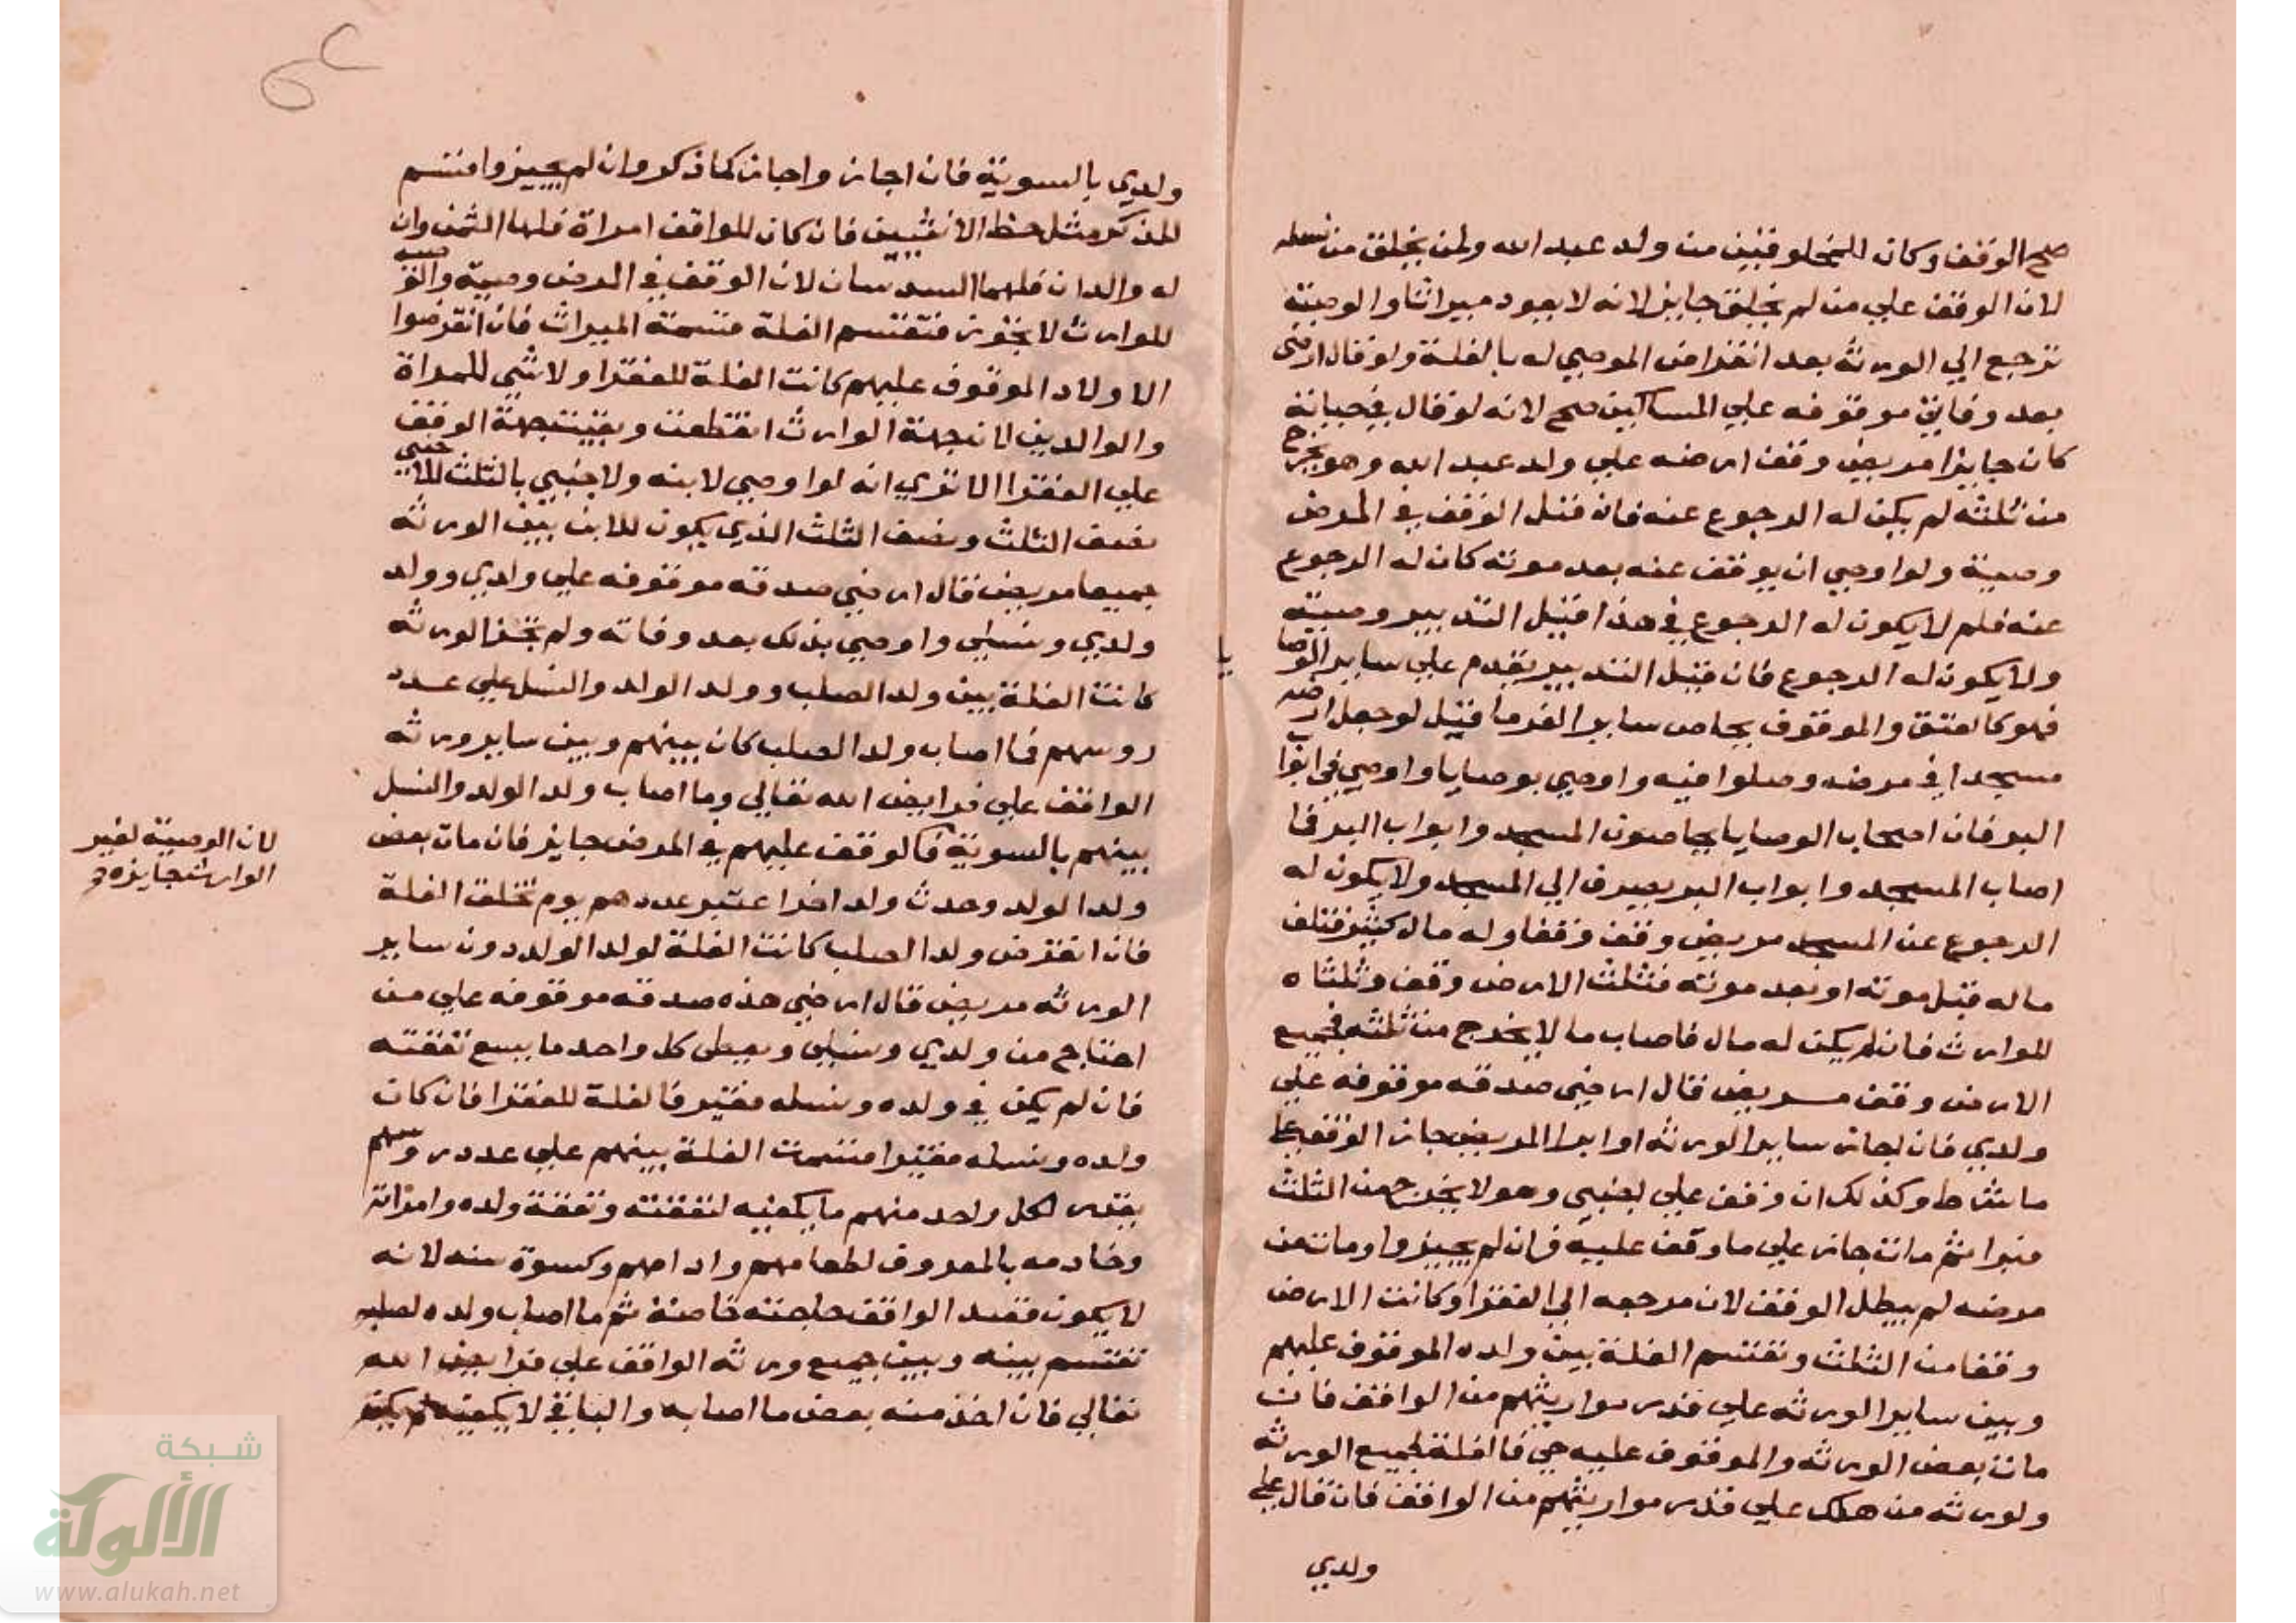 صح الوقف وكان للمخلوقين من ولد عبد الله ولمن يخلق من نسله
لان الوقف علي من لم يخلق جايز لانه لا يعود ميراثا والوصية
ترجع الي الورثه بعد انقراض الموصي له بالغلة ولو قال ارضى
بعد وفاتي موقوفه علي المساكين صح لانه لو قال في حياته
كان جايزا مريض وقف ارضه علي ولد عبد الله وهو يخرج
من ثلثه لم يكن له الرجوع عنه فان قتل الوقف في المرض
وصية ولو اوصي ان يوقف عنه بعد موته كان له الرجوع
عنه فلم لا يكون له الرجوع في هذا قيل التدبير وصية
ولا يكون له الرجوع فان قيل التدبير يقدم علي ساير الوصايا
فهو كالعتق والموقوف يحاص ساير الغرما قيل لو جعل ارضه
مسجدا في مرضه وصلوا فيه واوصي بوصايا واوصي في ابوا
البر فان اصحاب الوصايا يحاصون المسجد وابواب البر فما
اصاب المسجد وابواب البر يصرف الي المسجد ولا يكون له
الرجوع عن المسجد مريض وقف وقفا وله مال كثير فتلف
ماله قبل موته او بعد موته فثلث الارض وقف وثلثاه
للوارث فان لم يكن له مال فاصاب مالا يخرج من ثلثه فجميع
الارض وقف مريض قال ارضي صدقه موقوفه علي
ولدي فان اجاز ساير الورثه او ابرا المريض جاز الوقف علي
ما شرط وكذلك ان وقف علي اجنبي وهو لا يخرج من الثلث
فبرا ثم مات جاز علي ما وقف عليه فان لم يجيزوا ومات من
مرضه لم يبطل الوقف لان مرجعه الي الفقرا وكانت الارض
وقفا من الثلث وتقتسم الغلة بين ولده الموقوف عليهم
وبين ساير الورثه علي قدر مواريثهم من الواقف فان
مات بعض الورثه والموقوف عليه حي فالغلة لجميع الورثه
ولورثه من هلك علي قدر مواريثهم من الواقف فان قال علي
ولدي
ولدي بالسوية فان اجاز واجاز كما ذكر وان لم يجيزوا قسم
للذكر مثل حظ الانثيين فان كان للواقف امراة فلها الثمن وان
له والدان فلهما السدسان لان الوقف في المرض وصية والوصية
للوارث لا يجوز فتقتسم الغلة قسمة الميراث فان انقرضوا
الاولاد الموقوف عليهم كانت الغلة للفقرا ولا شي للمراة
والوالدين لان جهة الوارث انقطعت وبقيت جهة الوقف
علي الفقرا الا تري انه لو اوصي لابنه ولاجنبي بالثلث للاجنبي
نصف الثلث ونصف الثلث الذي يكون للابن بين الورثه
جميعا مريض قال ارضي صدقه موقوفه علي ولدي وولد
ولدي ونسلي واوصي بذلك بعد وفاته ولم تجز الورثه
كانت الغلة بين ولد الصلب وولد الولد والنسل علي عدد
روسهم فما اصاب ولد الصلب كان بينهم وبين ساير ورثه
الواقف علي فرايض الله تعالي وما اصاب ولد الولد والنسل
بينهم بالسوية فالوقف عليهم في المرض جايز فان مات بعض
لان الوصية لغير
الوارث جايزه
ولد الولد وحدث ولد اخر اعتبر عددهم يوم تخلق الغلة
فان انقرض ولد الصلب كانت الغلة لولد الولد دون ساير
الورثه مريض قال ارضي هذه صدقه موقوفه علي من
احتاج من ولدي ونسلي ويعطى كل واحد ما يسع نفقته
فان لم يكن في ولده ونسله فقير فالغلة للفقرا فان كان
ولده ونسله فقيرا قسمت الغلة بينهم علي عدد روسهم
يقدر لكل واحد منهم ما يكفيه لنفقته ونفقة ولده وامراته
وخادمه بالمعروف لطعامهم وادامهم وكسوة سنه لانه
لا يكون قصد الواقف حاجته خاصة ثم ما اصاب ولده لصلبه
تقتسم بينه وبين جميع ورثه الواقف علي فرايض الله
تعالي فان اخذ منه بعض ما اصابه والباقي لا يكفيه لم يكن
شبكة
الألوكة
www.alukah.net